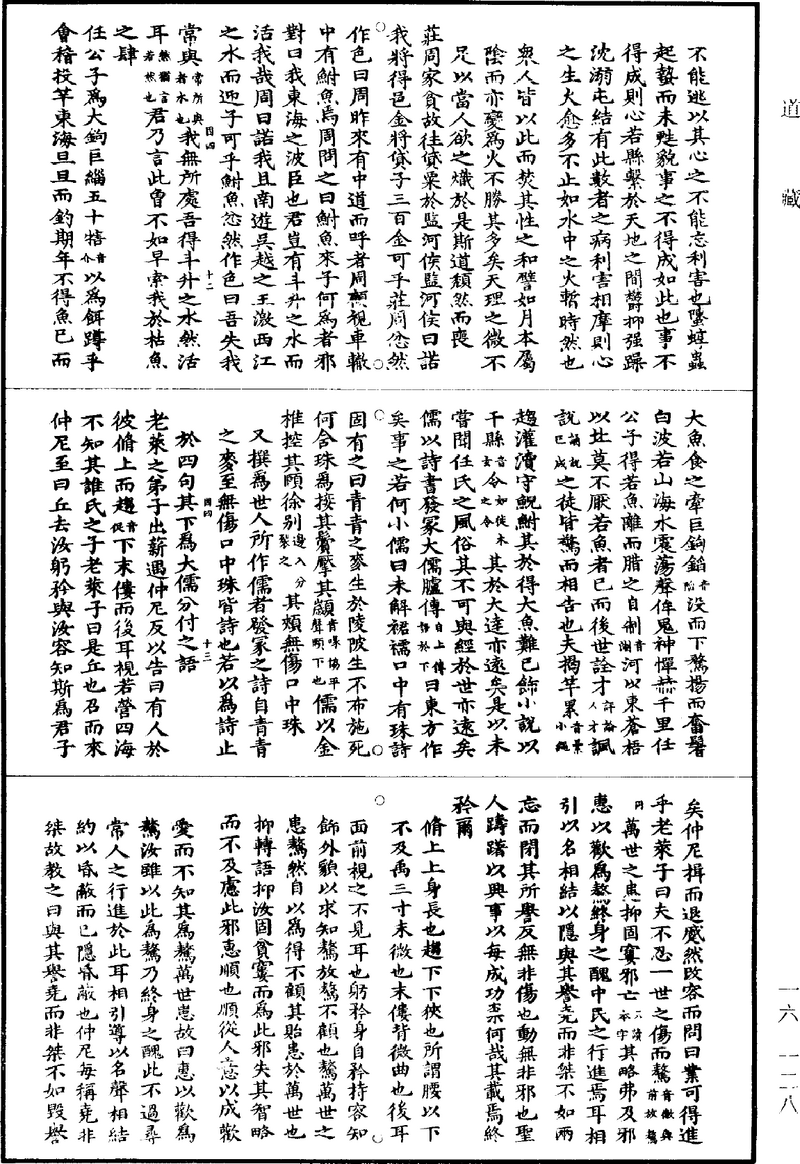 道藏
不能逃以其心之不能忘利害也螴蜳蟲
起蟄而未甦貌事之不得成如此也事不
得成則心若縣繫於天地之間鬱抑强躁
沈溺屯結有此數者之病利害相摩則心
之生火愈多不止如水中之火暫時然也
衆人皆以此而焚其性之和譬如月本屬
陰而亦變爲火不勝其多矣天理之微不
足以當人欲之熾於是斯道頹然而喪
莊周家貧故往貸粟於監河侯監河侯曰諾
我將得邑金將貸子三百金可乎莊周忿然
作色曰周昨來有中道而呼者周顧視車轍
中有鮒魚焉周問之曰鮒魚來子何爲者邪
對曰我東海之波臣也君豈有斗升之水而
活我哉周曰諾我且南遊吳越之王激西江
之水而迎子可乎鮒魚忿然作色曰吾失我
四四 十二
常與常所與者水也我無所處吾得斗升之水然活
耳然猶言若然也君乃言此曾不如早索我於枯魚
之肆
任公子爲大鉤巨緇五十犗音介以爲餌蹲乎
會稽投竿東海旦旦而釣期年不得魚已而
大魚食之牽巨鉤錎音陷没而下騖揚而奮鬐
白波若山海水震蕩聲侔鬼神憚赫千里任
公子得若魚離而腊之自制河音浙河以東蒼梧
以北莫不厭若魚者已而後世詮才評論人才諷
說諷說已成之徒皆驚而相告也夫揭竿累音縲小繩
趨灌瀆守鯢鮒其於得大魚難已飾小說以
干縣音玄令如從木之令其於大達亦遠矣是以未
嘗聞任氏之風俗其不可與經於世亦遠矣
儒以詩書發冢大儒臚傳自上傳語於下曰東方作
矣事之若何小儒曰未解裙襦口中有珠詩
固有之曰青青之麥生於陵陂生不布施死
何含珠爲接其鬢擪其顪儒以金
椎控其頤徐别其頰無傷口中珠
又撰爲世人所作儒者發冢之詩自青青
之麥至無傷口中珠皆詩也若以爲詩止
四四 十三
於四句其下爲大儒分付之語
老萊之弟子出薪遇仲尼反以告曰有人於
彼脩上而趨音促下末僂而後耳視若營四海
不知其誰氏之子老萊子曰是丘也召而來
仲尼至曰丘去汝躬矜與汝容知斯爲君子
矣仲尼揖而退蹙然改容而問曰業可得進
乎老萊子曰夫不忍一世之傷而驁音傲與前放驁同
萬世之患抑固窶邪亡其略弗及邪
惠以歡爲驁終身之醜中民之行進焉耳相
引以名相結以隱與其譽堯而非桀不如兩
忘而閉其所譽反無非傷也動無非邪也聖
人躊躇以興事以每成功柰何哉其載焉終
矜爾
脩上上身長也趨下下狹也所謂腰以下
不及禹三寸末微也末僂背微曲也後耳
面前視之不見耳也躬矜身自矜持容知
飾外貌以求知驁放驁不顧也驁萬世之
患驁然自以爲得不顧其貽患於萬世也
抑轉語抑汝固貧窶而爲此邪失其智略
而不及慮此邪惠順也順從人意以成歡
愛而不知其爲驁萬世患故曰惠以歡爲
驁汝雖以此爲驁乃終身之醜此不過尋
常人之行進於此耳相引導以名聲相結
約以昏蔽而已隱昏蔽也仲尼每稱堯非
桀故教之曰與其譽堯而非桀不如毀譽
一六 一二八